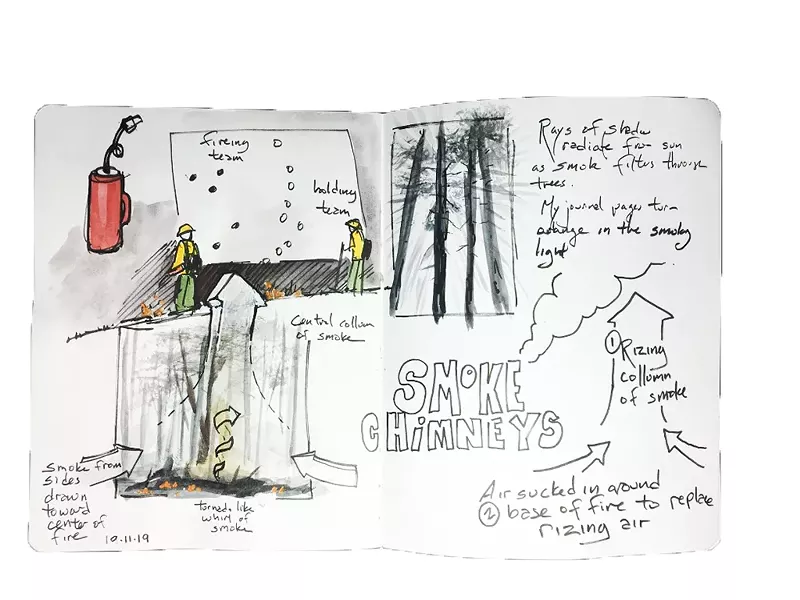 fireing
team
holding
team
Central collum
of smoke
smoke from
sides
drawn
toward
center of
fire
10.11.19
tornado like
whirl of
smoke
Rays of shadow
radiate from sun
as smoke filters through
trees.
My journal pages turn
orange in the smokey
light
SMOKE
CHiMNEYS
① Rizing
collumn
of smoke
Air sucked in around
② base of fire to replace
rizing air